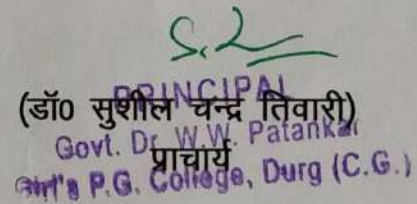 PRINCIPAL
(डॉ0 सुशील चन्द्र तिवारी)
Govt. Dr. W.W. Patankar
प्राचार्य
Girl's P.G. College, Durg (C.G.)